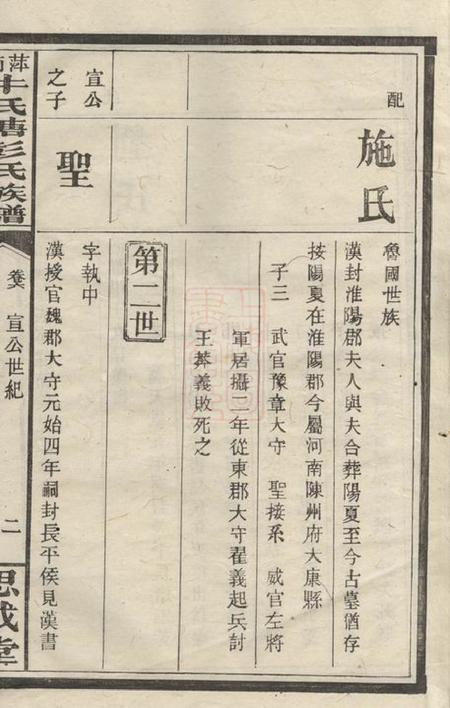 配
施氏
魯國世族
漢封淮陽郡夫人與夫合葬陽夏至今古墓猶存
按陽夏在淮陽郡今屬河南陳州府太康縣
子三 武官豫章大守 聖接系 威官左將
軍居攝二年從東郡大守翟義起兵討
王莽義敗死之
第二世
宣公
之子
聖
字執中
漢授官魏郡大守元始四年嗣封長平侯見漢書
萍
氏塘彭氏族譜
卷 宣公世紀
二
思成堂